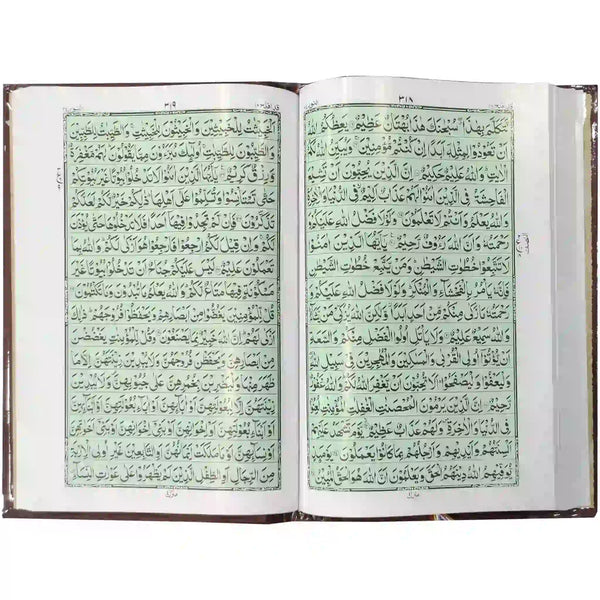 ٣١٨
نَّتَكَلَّمَ بِهٰذَا سُبْحٰنَكَ هٰذَا بُهْتَانٌ عَظِيْمٌ يَعِظُكُمُ اللّٰهُ
اَنْ تَعُوْدُوْا لِمِثْلِهٖۤ اَبَدًا اِنْ كُنْتُمْ مُّؤْمِنِيْنَ وَيُبَيِّنُ اللّٰهُ لَكُمُ
الْاٰيٰتِ وَاللّٰهُ عَلِيْمٌ حَكِيْمٌ اِنَّ الَّذِيْنَ يُحِبُّوْنَ اَنْ تَشِيْعَ
الْفَاحِشَةُ فِي الَّذِيْنَ اٰمَنُوْا لَهُمْ عَذَابٌ اَلِيْمٌ فِي الدُّنْيَا وَالْاٰخِرَةِ
وَاللّٰهُ يَعْلَمُ وَاَنْتُمْ لَا تَعْلَمُوْنَ وَلَوْلَا فَضْلُ اللّٰهِ عَلَيْكُمْ وَ
رَحْمَتُهٗ وَاَنَّ اللّٰهَ رَءُوْفٌ رَّحِيْمٌ يٰۤاَيُّهَا الَّذِيْنَ اٰمَنُوْا
لَا تَتَّبِعُوْا خُطُوٰتِ الشَّيْطٰنِ وَمَنْ يَّتَّبِعْ خُطُوٰتِ الشَّيْطٰنِ
فَاِنَّهٗ يَاْمُرُ بِالْفَحْشَآءِ وَالْمُنْكَرِ وَلَوْلَا فَضْلُ اللّٰهِ عَلَيْكُمْ وَ
رَحْمَتُهٗ مَا زَكٰى مِنْكُمْ مِّنْ اَحَدٍ اَبَدًا وَّلٰكِنَّ اللّٰهَ يُزَكِّيْ مَنْ يَّشَآءُ
وَاللّٰهُ سَمِيْعٌ عَلِيْمٌ وَلَا يَاْتَلِ اُولُوا الْفَضْلِ مِنْكُمْ وَالسَّعَةِ
اَنْ يُّؤْتُوْۤا اُولِي الْقُرْبٰى وَالْمَسٰكِيْنَ وَالْمُهٰجِرِيْنَ فِيْ سَبِيْلِ اللّٰهِ
وَلْيَعْفُوْا وَلْيَصْفَحُوْا اَلَا تُحِبُّوْنَ اَنْ يَّغْفِرَ اللّٰهُ لَكُمْ وَاللّٰهُ غَفُوْرٌ
رَّحِيْمٌ اِنَّ الَّذِيْنَ يَرْمُوْنَ الْمُحْصَنٰتِ الْغٰفِلٰتِ الْمُؤْمِنٰتِ لُعِنُوْا
فِي الدُّنْيَا وَالْاٰخِرَةِ وَلَهُمْ عَذَابٌ عَظِيْمٌ يَّوْمَ تَشْهَدُ عَلَيْهِمْ
اَلْسِنَتُهُمْ وَاَيْدِيْهِمْ وَاَرْجُلُهُمْ بِمَا كَانُوْا يَعْمَلُوْنَ يَوْمَئِذٍ
يُّوَفِّيْهِمُ اللّٰهُ دِيْنَهُمُ الْحَقَّ وَيَعْلَمُوْنَ اَنَّ اللّٰهَ هُوَ الْحَقُّ الْمُبِيْنُ
٣١٩
اَلْخَبِيْثٰتُ لِلْخَبِيْثِيْنَ وَالْخَبِيْثُوْنَ لِلْخَبِيْثٰتِ وَالطَّيِّبٰتُ لِلطَّيِّبِيْنَ
وَالطَّيِّبُوْنَ لِلطَّيِّبٰتِ اُولٰٓئِكَ مُبَرَّءُوْنَ مِمَّا يَقُوْلُوْنَ لَهُمْ مَّغْفِرَةٌ
وَّرِزْقٌ كَرِيْمٌ يٰۤاَيُّهَا الَّذِيْنَ اٰمَنُوْا لَا تَدْخُلُوْا بُيُوْتًا غَيْرَ بُيُوْتِكُمْ
حَتّٰى تَسْتَاْنِسُوْا وَتُسَلِّمُوْا عَلٰۤى اَهْلِهَا ذٰلِكُمْ خَيْرٌ لَّكُمْ لَعَلَّكُمْ
تَذَكَّرُوْنَ فَاِنْ لَّمْ تَجِدُوْا فِيْهَاۤ اَحَدًا فَلَا تَدْخُلُوْهَا حَتّٰى يُؤْذَنَ
لَكُمْ وَاِنْ قِيْلَ لَكُمُ ارْجِعُوْا فَارْجِعُوْا هُوَ اَزْكٰى لَكُمْ وَاللّٰهُ بِمَا
تَعْمَلُوْنَ عَلِيْمٌ لَيْسَ عَلَيْكُمْ جُنَاحٌ اَنْ تَدْخُلُوْا بُيُوْتًا غَيْرَ
مَسْكُوْنَةٍ فِيْهَا مَتَاعٌ لَّكُمْ وَاللّٰهُ يَعْلَمُ مَا تُبْدُوْنَ وَمَا تَكْتُمُوْنَ
قُلْ لِّلْمُؤْمِنِيْنَ يَغُضُّوْا مِنْ اَبْصَارِهِمْ وَيَحْفَظُوْا فُرُوْجَهُمْ ذٰلِكَ
اَزْكٰى لَهُمْ اِنَّ اللّٰهَ خَبِيْرٌ بِمَا يَصْنَعُوْنَ وَقُلْ لِّلْمُؤْمِنٰتِ يَغْضُضْنَ
مِنْ اَبْصَارِهِنَّ وَيَحْفَظْنَ فُرُوْجَهُنَّ وَلَا يُبْدِيْنَ زِيْنَتَهُنَّ اِلَّا مَا
ظَهَرَ مِنْهَا وَلْيَضْرِبْنَ بِخُمُرِهِنَّ عَلٰى جُيُوْبِهِنَّ وَلَا يُبْدِيْنَ
زِيْنَتَهُنَّ اِلَّا لِبُعُوْلَتِهِنَّ اَوْ اٰبَآئِهِنَّ اَوْ اٰبَآءِ بُعُوْلَتِهِنَّ اَوْ اَبْنَآئِهِنَّ
اَوْ اَبْنَآءِ بُعُوْلَتِهِنَّ اَوْ اِخْوَانِهِنَّ اَوْ بَنِيْۤ اِخْوَانِهِنَّ اَوْ بَنِيْۤ اَخَوٰتِهِنَّ
اَوْ نِسَآئِهِنَّ اَوْ مَا مَلَكَتْ اَيْمَانُهُنَّ اَوِ التّٰبِعِيْنَ غَيْرِ اُولِي الْاِرْبَةِ
مِنَ الرِّجَالِ اَوِ الطِّفْلِ الَّذِيْنَ لَمْ يَظْهَرُوْا عَلٰى عَوْرٰتِ النِّسَآءِ